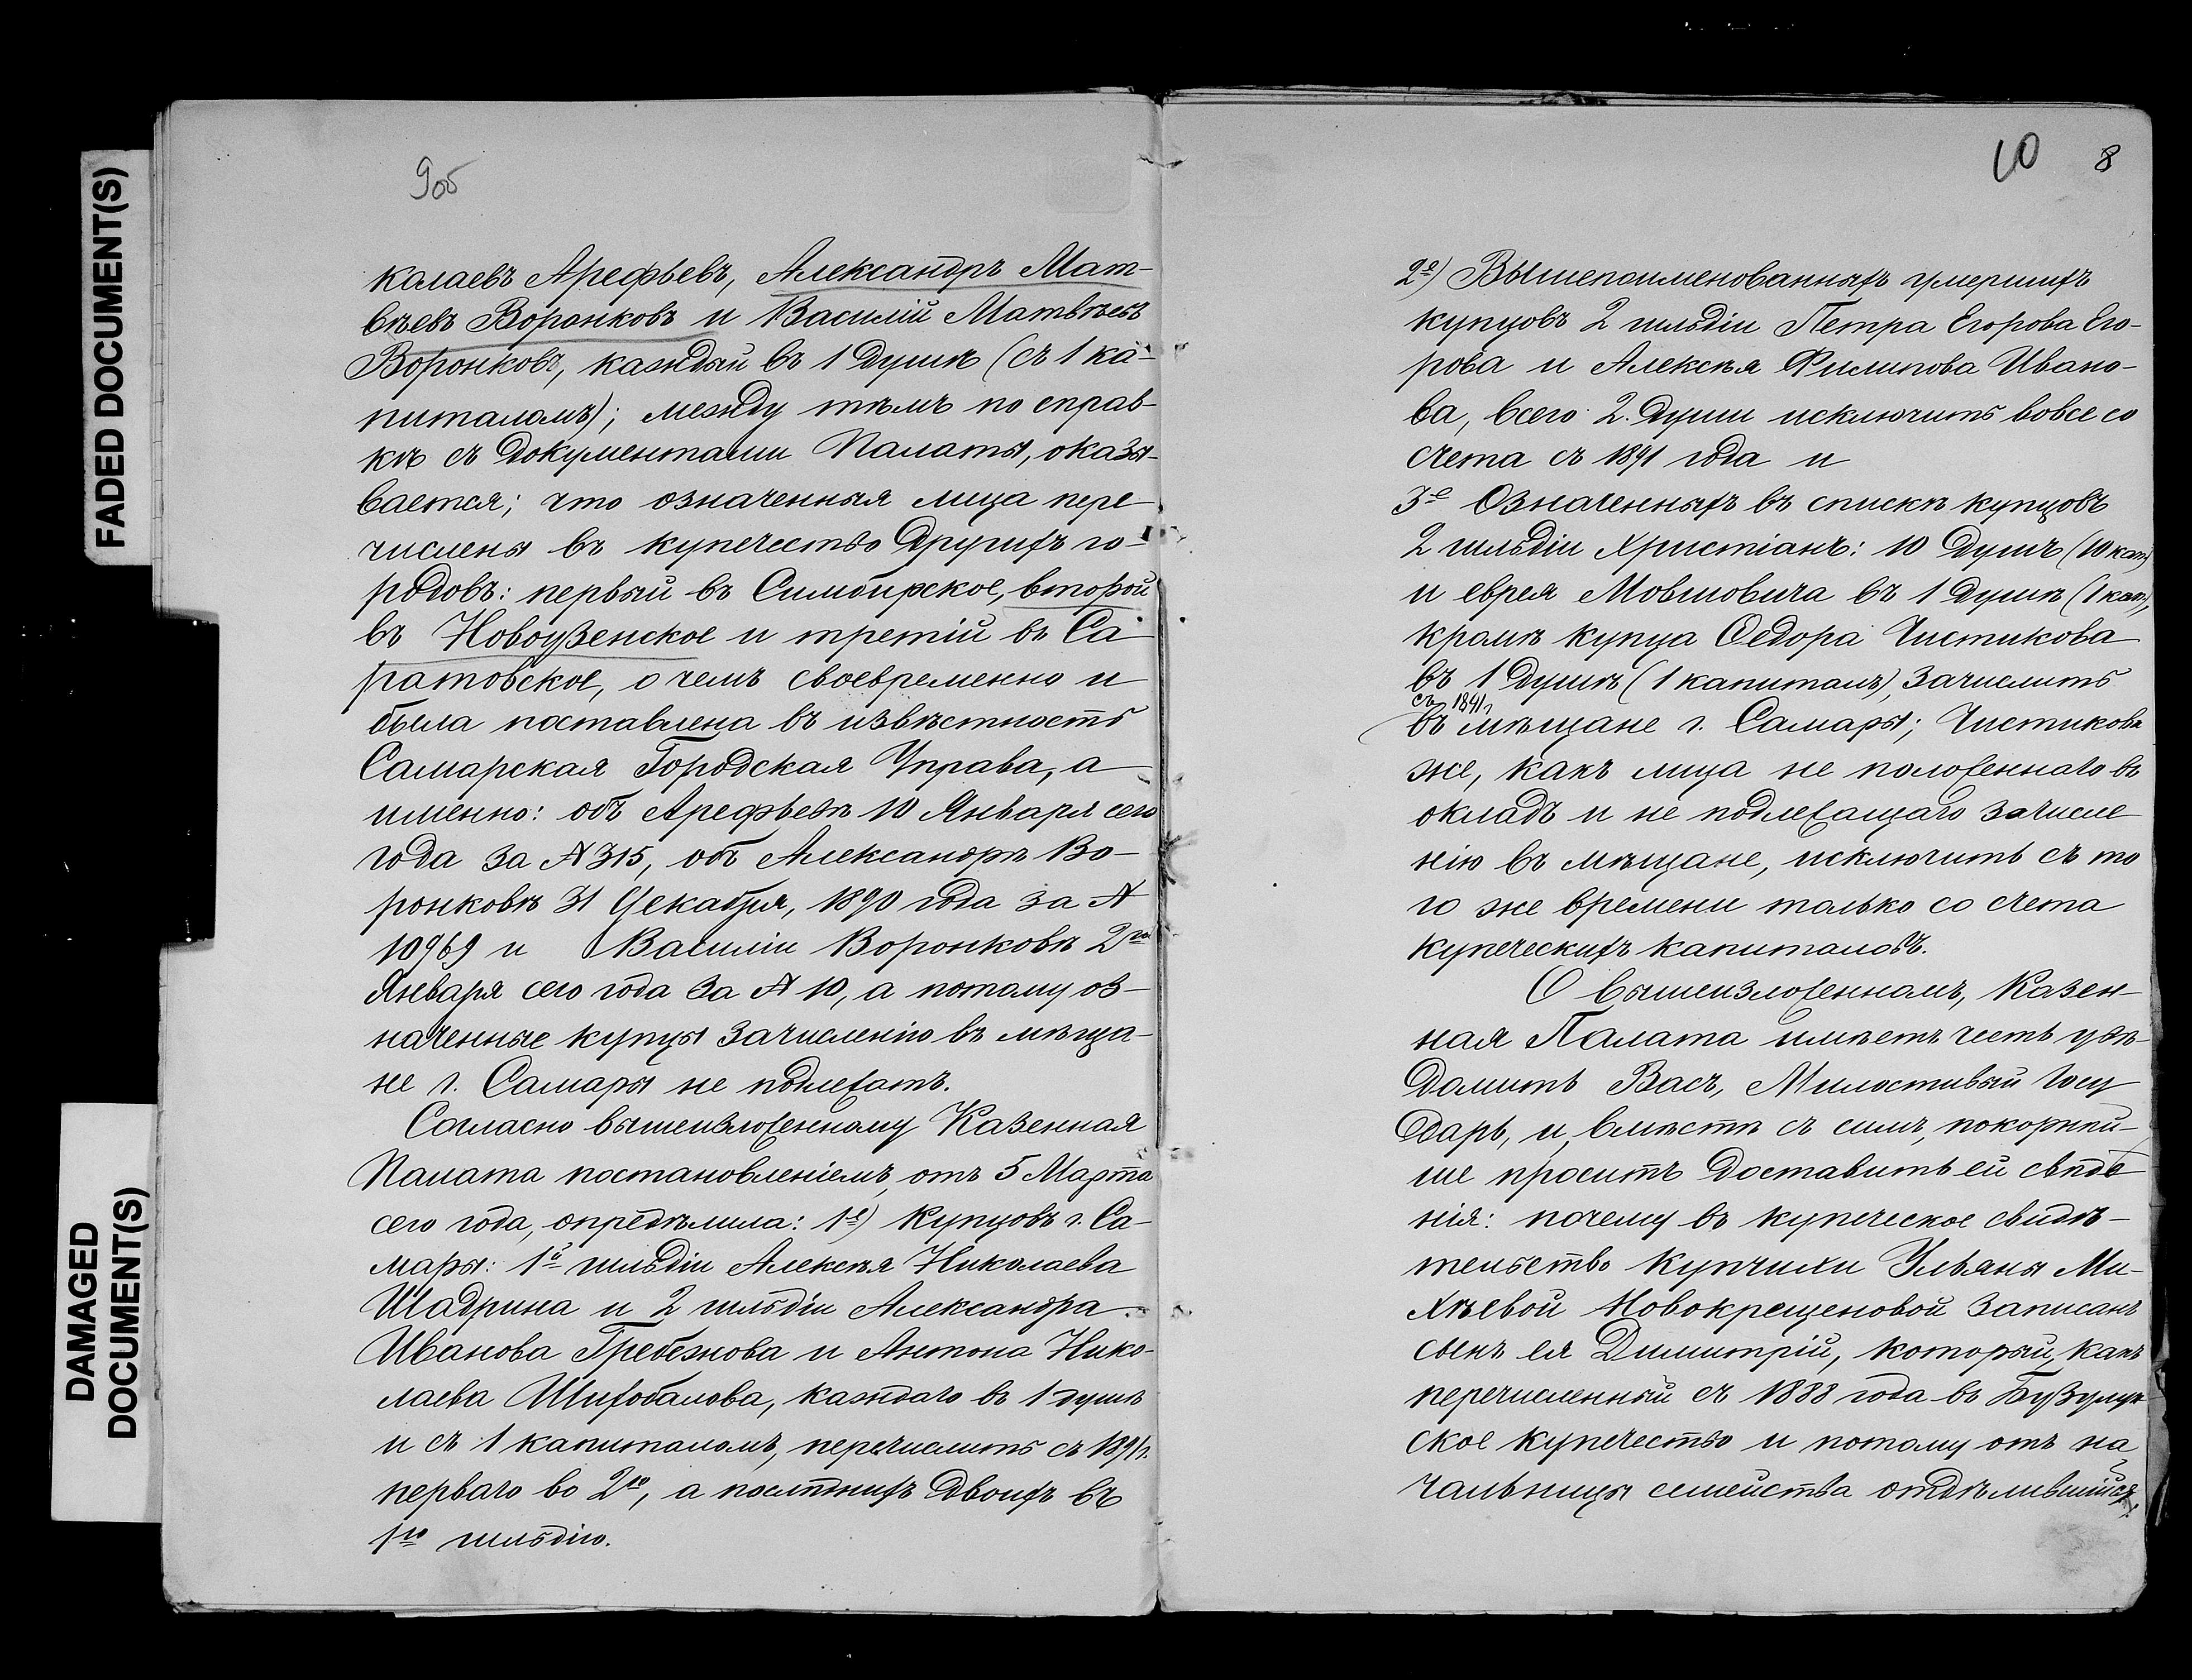 FADED DOCUMENT(S)
DAMAGED
DOCUMENT(S)
9об
колаевъ Арефьевъ, Александръ Мат-
вѣевъ Воронковъ и Василій Матвѣевъ
Воронковъ, каждый въ 1 душѣ (съ 1 ка-
питаломъ); между тѣмъ по справ-
кѣ съ документами Палаты, оказы-
вается; что означенныя лица пере-
числены въ купечество другихъ го-
родовъ: первый въ Симбирское, второй
въ Новоузенское и третій въ Са-
ратовское, о чемъ своевременно и
была поставлена въ извѣстность
Самарская Городская Управа, а
именно: объ Арефьевѣ 10 Января сего
года за № 315, объ Александрѣ Во-
ронковѣ 31 Декабря, 1890 года за №
10969 и Василіи Воронковѣ 2го
Января сего года за № 10, а потому оз-
наченные купцы зачисленію въ мѣща-
не г. Самары не подлежатъ.
Согласно вышеизложенному Казенная
Палата постановленіемъ, отъ 5 Марта
сего года, опредѣлила: 1е) Купцовъ г. Са-
мары: 1й гильдіи Алексѣя Николаева
Шадрина и 2 гильдіи Александра
Иванова Гребежнова и Антона Нико-
лаева Шихобалова, каждаго въ 1 душѣ
и съ 1 капиталомъ, перечислить съ 1891 г.
перваго во 2ю, а послѣднихъ двоихъ въ
1ю гильдію.
10 8
2е) Вышепоименованныхъ умершихъ
купцовъ 2 гильдіи Петра Егорова Его-
рова и Алексѣя Филипова Ивано-
ва, всего 2 души исключить вовсе со
счета съ 1891 года и
3е Означенныхъ въ спискѣ купцовъ
2 гильдіи Христіанъ: 10 душъ (10 кап.)
и еврея Мовшовича въ 1 душѣ (1 кап.),
кромѣ купца Ѳедора Чистикова
въ 1 душѣ (1 капиталъ), зачислить
съ 1891 г.
въ мѣщане г. Самары; Чистикова
же, какъ лица не положеннаго въ
окладъ и не подлежащаго зачисле
нію въ мѣщане, исключить съ то
го же времени только со счета
купеческихъ капиталовъ.
О вышеизложенномъ, Казен-
ная Палата имѣетъ честь увѣ-
домить Васъ, Милостивый Госу
дарь, и, вмѣстѣ съ симъ, покорнѣй-
ше проситъ доставить ей свѣдѣ
нія: почему въ купеческое свидѣ-
тельство купчихи Ульяны Ми-
хѣевой Новокрещеновой записанъ
сынъ ея Димитрій, который, какъ
перечисленный съ 1888 года въ Бузулук-
ское купечество и потому отъ на
чальницы семейства отдѣлившійся,